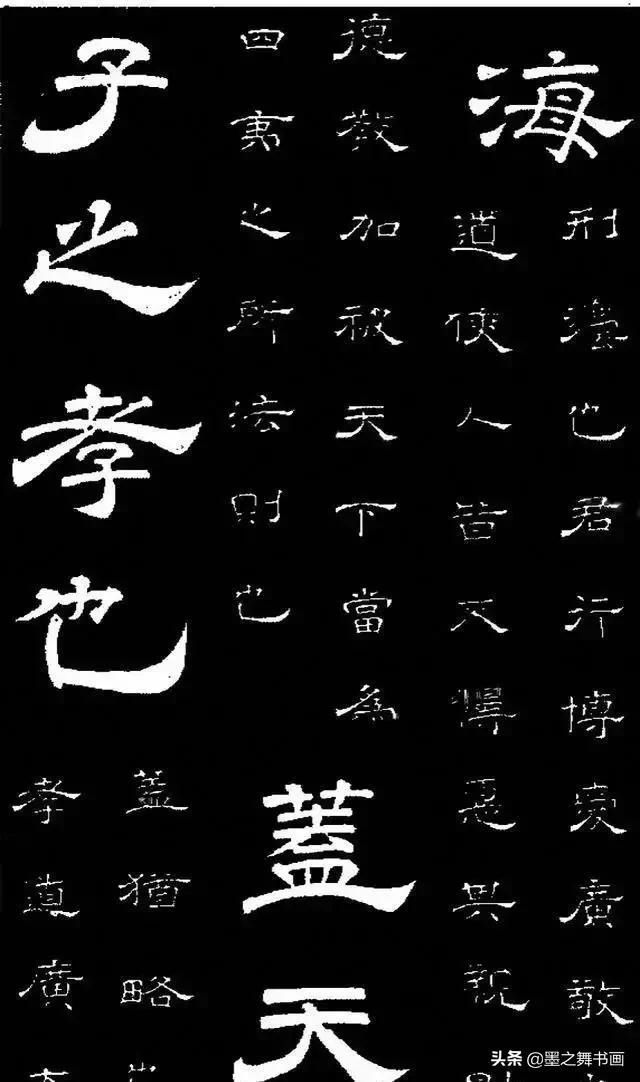 海
刑灋也君行博愛廣敬
道使人皆不慢惡其親則
德教加被天下當為
四夷之所法則也
蓋天
子之孝也
蓋猶略也
孝道廣
头条 @墨之舞书画